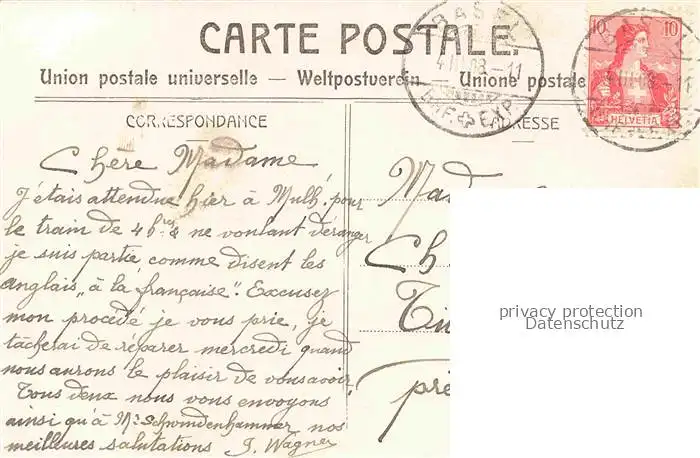 CARTE POSTALE.
Union postale universelle — Weltpostverein — Unione postale
BASEL
4 III 08 - 11
BRF. EXP.
10 10
HELVETIA
CORRESPONDANCE
ADRESSE
Chère Madame
J'étais attendue hier à Mulh. pour
le train de 4 hres & ne voulant déranger
je suis partie comme disent les
anglais „à la française". Excusez
mon procédé je vous prie, je
tâcherai de réparer mercredi quand
nous aurons le plaisir de vous avoir.
Tous deux nous vous envoyons
ainsi qu'à Mr Schwindenhammer nos
meilleures salutations J. Wagner
Mad
Ch
pré
privacy protection
Datenschutz